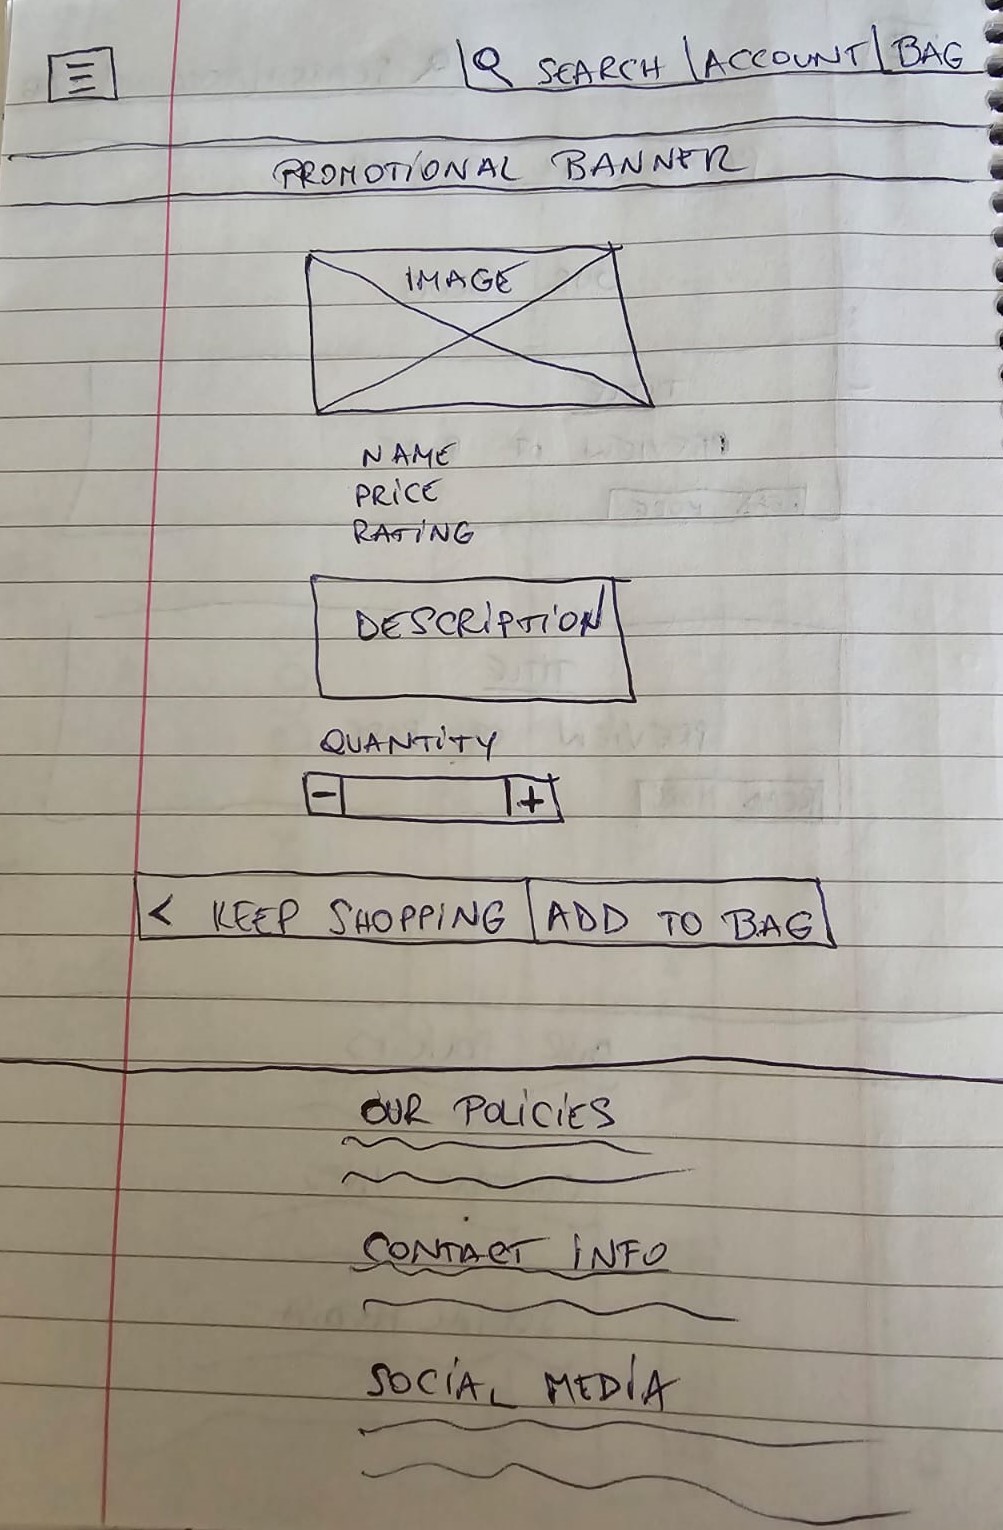 SEARCH | ACCOUNT | BAG
PROMOTIONAL BANNER
IMAGE
NAME
PRICE
RATING
DESCRIPTION
QUANTITY
- +
< KEEP SHOPPING | ADD TO BAG
OUR POLICIES
CONTACT INFO
SOCIAL MEDIA